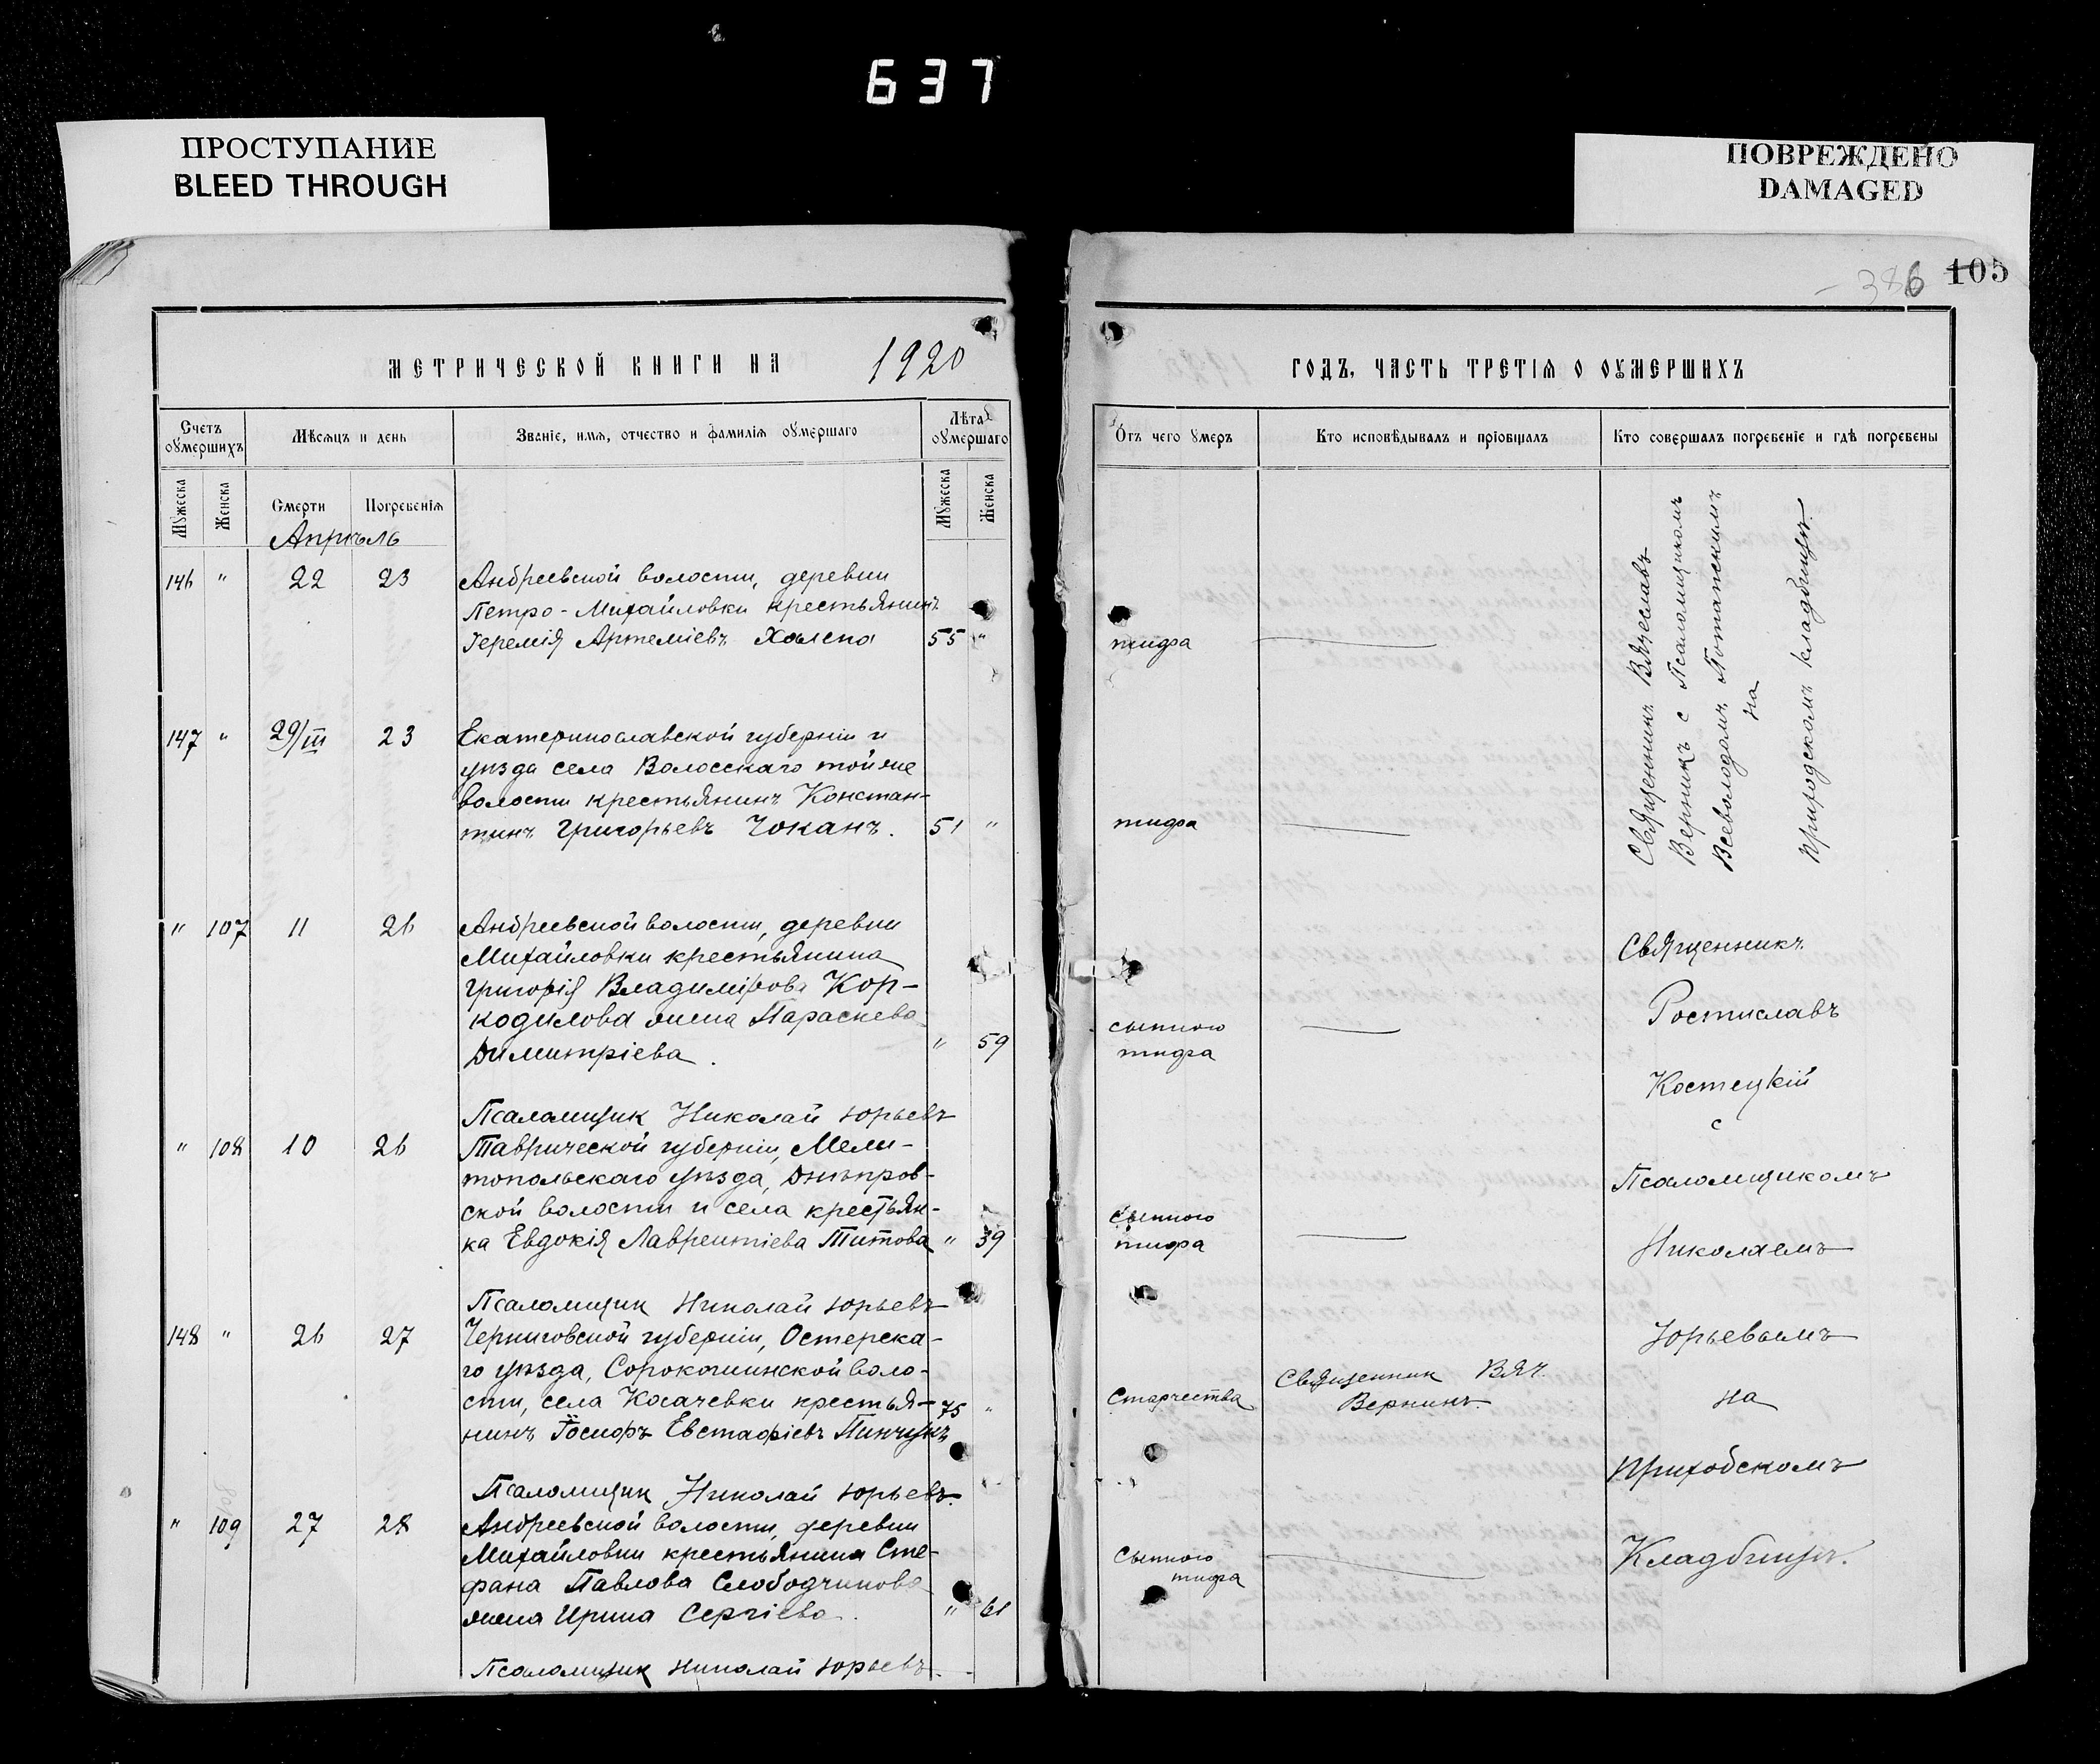 637
ПРОСТУПАНИЕ
BLEED THROUGH
ПОВРЕЖДЕНО
DAMAGED
386 105
МЕТРИЧЕСКОЙ КНИГИ НА 1920
Счетъ оумершихъ
Мѣсяцъ и день
Званіе, имя, отчество и фамилія оумершаго
Лѣта оумершаго
Мужеска
Женска
Смерти
Погребенія
Мужеска
Женска
Апрѣль
146 " 22 23 Андреевской волости, деревни
Петро-Михайловки крестьянинъ
Іеремія Артеміевъ Халепа 55 "
147 " 29/III 23 Екатеринославской губерніи и
уѣзда села Волосскаго той же
волости крестьянинъ Констан-
тинъ Григорьевъ Чоканъ. 51 "
" 107 11 26 Андреевской волости, деревни
Михайловки крестьянина
Григорія Владимірова Кор-
кодилова жена Параскева
Димитріева. " 59
Псаломщик Николай Юрьевъ
" 108 10 26 Таврической губерніи, Мели-
топольскаго уѣзда, Днѣпров-
ской волости и села крестьян-
ка Евдокія Лаврентіева Титова " 39
Псаломщик Николай Юрьевъ
148 " 26 27 Черниговской губерніи, Остерска-
го уѣзда, Сорокошинской воло-
сти, села Косачевки крестья- 75 "
нинъ Іосифъ Евстафіевъ Пинчукъ
Псаломщик Николай Юрьевъ.
" 109 27 28 Андреевской волости, деревни
Михайловки крестьянина Сте-
фана Павлова Слободчикова
жена Ирина Сергіева. " 61
Псаломщик Николай Юрьевъ.
ГОДЪ, ЧАСТЬ ТРЕТІЯ О ОУМЕРШИХЪ
Отъ чего умеръ
Кто исповѣдывалъ и пріобщалъ
Кто совершалъ погребеніе и гдѣ погребены
тифа
тифа
Священникъ Вячеславъ
Верникъ с Псаломщикомъ
Всеволодомъ Потапскимъ
на
приходскомъ кладбищѣ.
сыпного
тифа
сыпного
тифа
Старчества
Священник Вяч.
Верникъ.
Сыпного
тифа
Священникъ
Ростиславъ
Костецкій
с
Псаломщикомъ
Николаемъ
Юрьевымъ
на
Приходскомъ
Кладбищѣ.